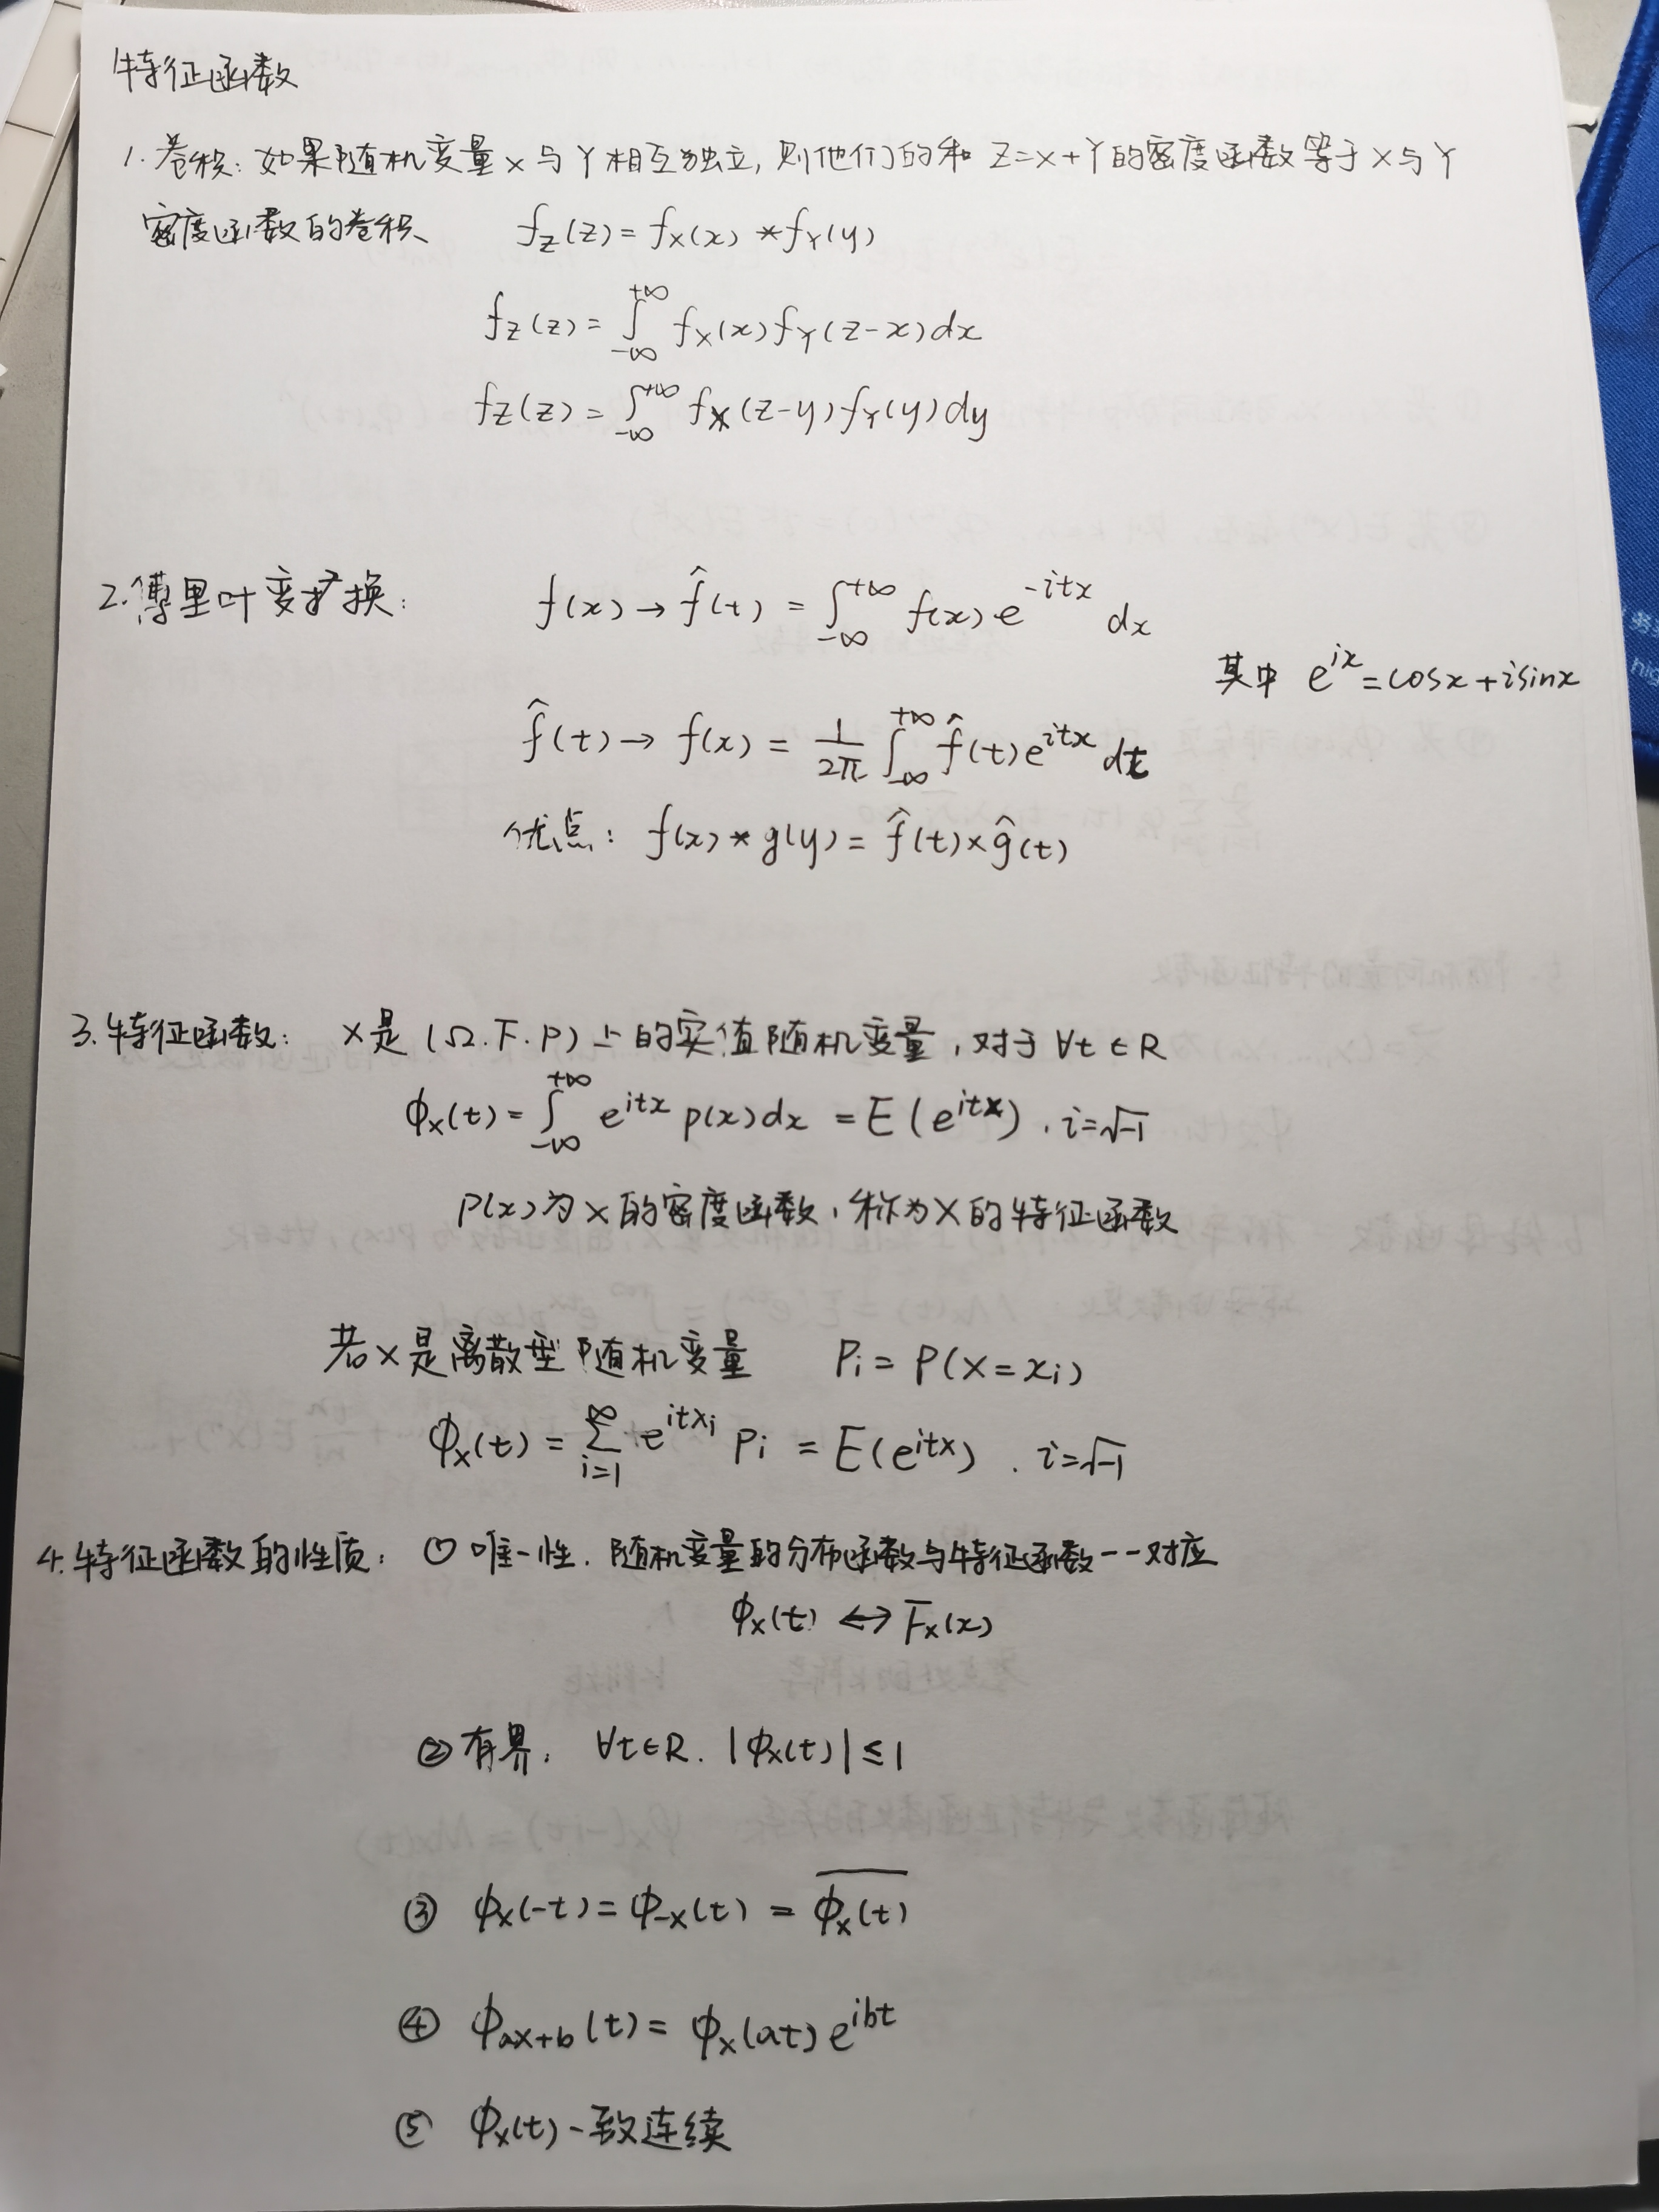 特征函数
1. 卷积: 如果随机变量X与Y相互独立, 则他们的和 Z=X+Y的密度函数等于X与Y
密度函数的卷积 f_Z(z) = f_X(x) * f_Y(y)
f_Z(z) = ∫_{-∞}^{+∞} f_X(x) f_Y(z-x) dx
f_Z(z) = ∫_{-∞}^{+∞} f_X(z-y) f_Y(y) dy
2. 傅里叶变换: f(x) → f̂(t) = ∫_{-∞}^{+∞} f(x) e^{-itx} dx
其中 e^{ix} = cosx + isinx
f̂(t) → f(x) = 1/2π ∫_{-∞}^{+∞} f̂(t) e^{itx} dt
优点: f(x) * g(y) = f̂(t) × ĝ(t)
3. 特征函数: X是 (Ω. F. P) 上的实值随机变量, 对于 ∀t∈R
φ_X(t) = ∫_{-∞}^{+∞} e^{itx} p(x) dx = E(e^{itX}). i=√-1
P(x)为X的密度函数, 称为X的特征函数
若X是离散型随机变量 P_i = P(X=x_i)
φ_X(t) = ∑_{i=1}^{∞} e^{itx_i} P_i = E(e^{itx}). i=√-1
4. 特征函数的性质: ① 唯一性. 随机变量的分布函数与特征函数一一对应
φ_X(t) ↔ F_X(x)
② 有界. ∀t∈R. |φ_X(t)| ≤ 1
③ φ_X(-t) = φ_{-X}(t) = \overline{φ_X(t)}
④ φ_{ax+b}(t) = φ_X(at) e^{ibt}
⑤ φ_X(t) 一致连续